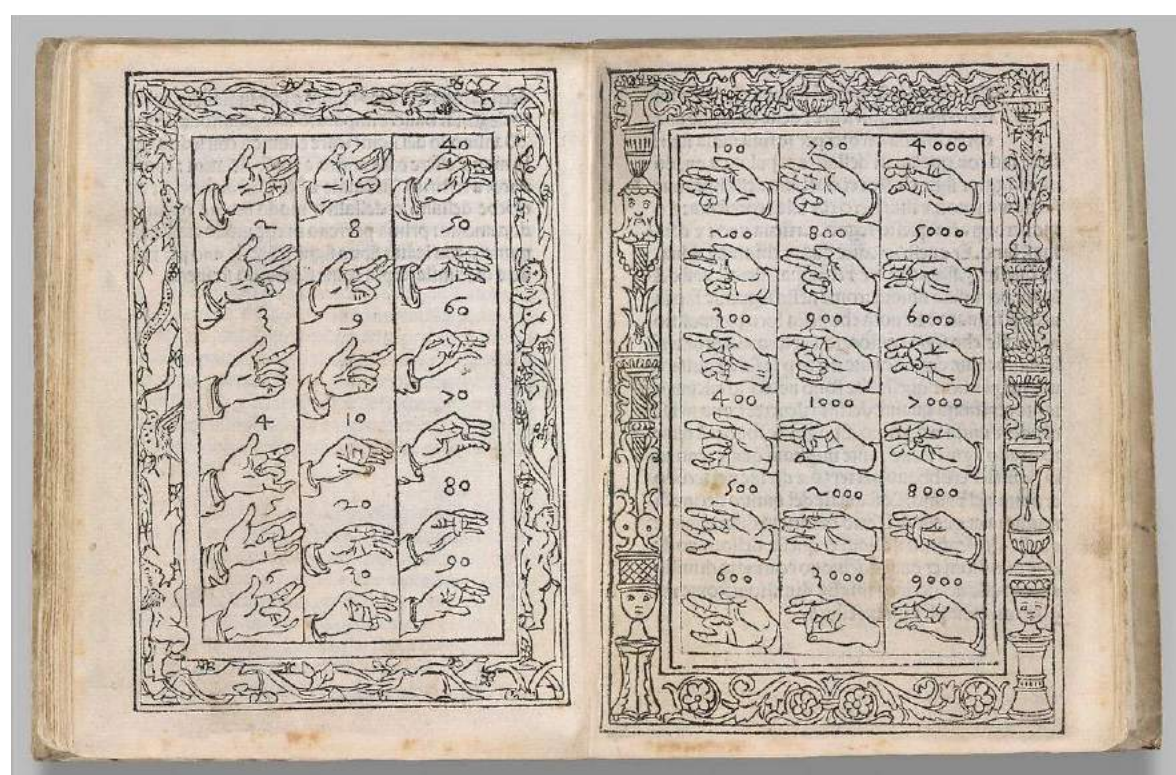 1
2
3
4
7
8
9
10
20
30
4
60
70
80
90
100
200
300
400
500
600
700
800
900
1000
2000
3000
4000
5000
6000
7000
8000
9000